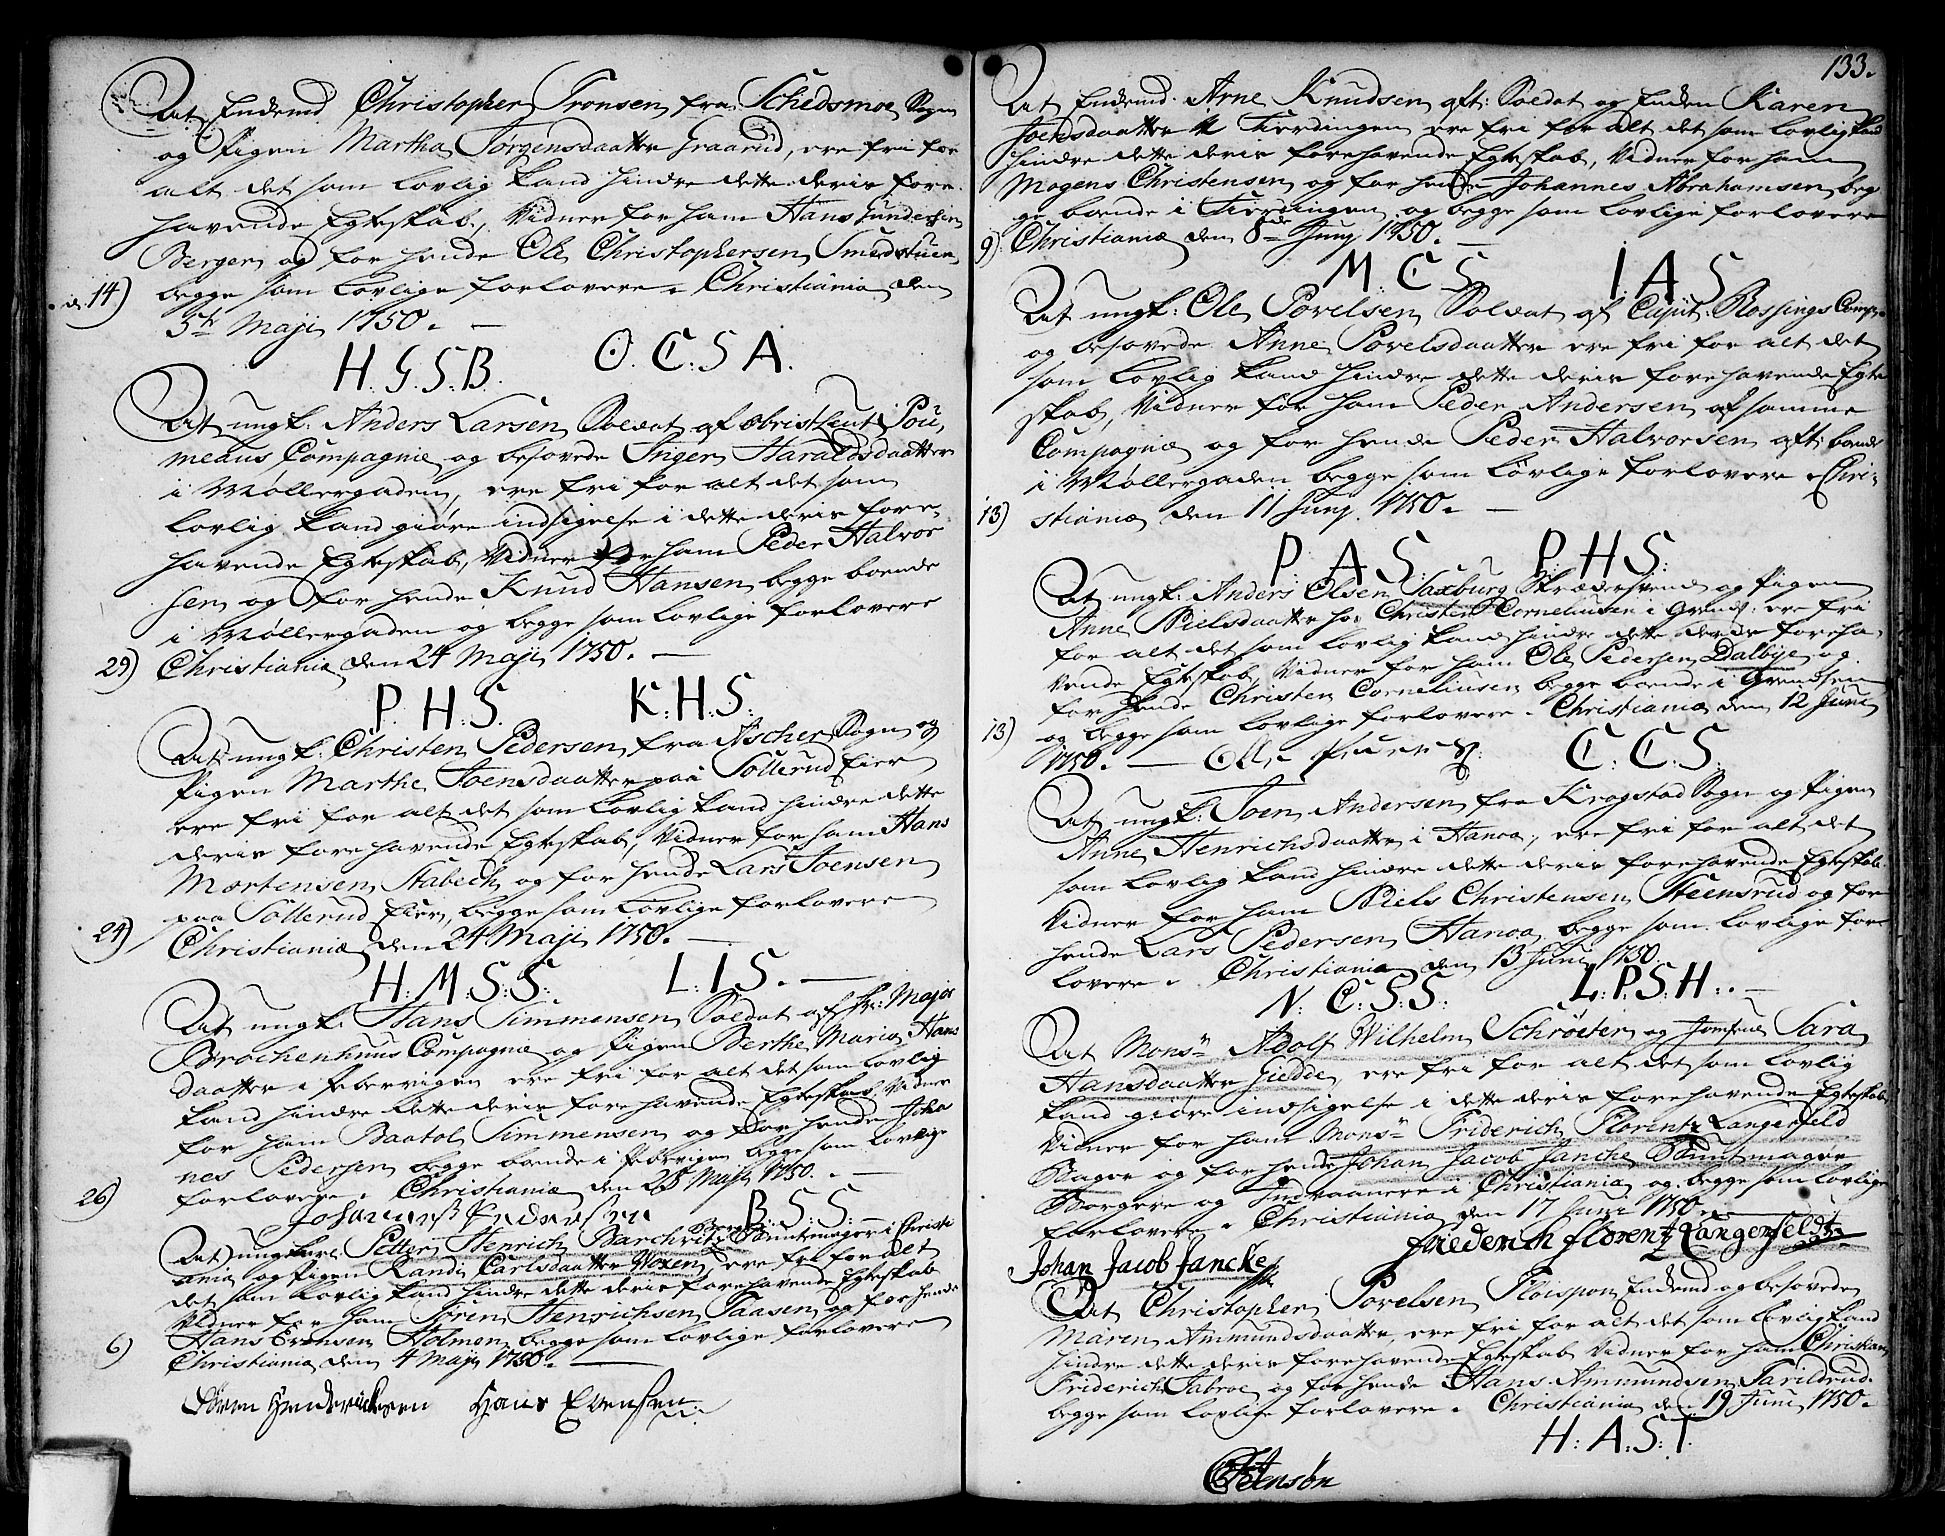 At Enckemd Christopher Tronsen fra Schedsmoe Sogn
og Pigen Martha Jørgensdaatter Graarud, ere fri for
alt det som lovlig kand hindre dette deris fore-
havende Egteskab, Vidner for ham Hans Gundersen
Berger og for hende Ole Christophersen Smedstuen
14) begge som lovlige forlovere. Christiania den
5te Maji 1750.
H. G. S. B. O. C. S A.
At ungk: Anders Larsen Soldat af obristLeut Pou,
meaus Compagnie og besovede Inger Haraldsdaatter
i Møllergaden, ere fri for alt det som
lovlig kand giøre indsigelse i dette deris fore-
havende Egteskab, Vidner for ham Peder Halvor
sen og for hende Knud Hansen begge boende
i Møllergaden og begge som lovlige forlovere
29) Christiania den 24 Maji 1750.
P. H. S. K: H: S:
At ungk: Christen Pedersen fra Ascher Sogn og
Pigen Marthe Joensdaatter paa Sollerud Eier
ere fri for alt det som lovlig kand hindre dette
deris forehavende Egteskab, Vidner for ham Hans
Mortensen Stabech og for hende Lars Joensen
paa Sollerud Eier, begge som lovlige forlovere
24) Christiania den 24 Maji 1750.
H: M: S: S: L: I S.
At ungk: Hans Simmensen Soldat af hr: Major
Brochenhuus Compagnie og Pigen Berthe Maria Hans
daatter i Pibervigen ere fri for alt det som lovlig
kand hindre dette deris forehavende Egteskab, Vidner
for ham Baatol Simmensen og for hende Joha
nes Pedersen begge boende i Pibervigen begge som lovlige
26) forlovere. Christiania den 25 Maji 1750.
B: S: S:
At ungkarl: Petter Henrich Barchvitz Borger Buntmager i Christi
ania og Pigen Randi Carlsdaatter Woxen, ere fri for alt
det som lovlig kand hindre dette deris forehavende Egteskab
Vidner for ham Sören Henrichsen Taasen og for hende
Hans Evensen Holmen begge som lovlige forlovere
6) Christiania den 4 Maji 1750.
Sören Henderichsen Hans Evensen
133.
At Enckemd. Arne Knudsen aft: Soldat og Enken Karen
Joensdaatter i Fierdingen ere fri for alt det som lovlig kand
hindre dette deris forehavende Egteskab, Vidner for ham
Mogens Christensen og for hende Johannes Abrahamsen beg
ge boende i Fierdingen og begge som lovlige forlovere
9) Christiania den 8de Junj 1750.
M. C S I A S
At ungk: Ole Povelsen Soldat af Capit: Rossings Comp:
og besovede Anne Povelsdaatter ere fri for alt det
som lovlig kand hindre dette deris forehavende Egte
skab, Vidner for ham Peder Andersen af samme
Compagnie og for hende Peder Halvorsen aft: boende
i Møllergaden begge som lovlige forlovere Chri-
13) stiania den 11 Junj 1750.
P: A S: P: H S:
At ungk: Anders Olsen Saxburg Skrædersvend og Pigen
Anne Nielsdaatter hos Christen Corneliusen i Grends: ere fri
for alt det som lovlig kand hindre dette deris foreha,
vende Egteskab, Vidner for ham Ole Pedersen Dalbye og
for hende Christen Corneliusen begge boende i Grendsen
13) og begge som lovlige forlovere. Christiania den 12 Junj
1750. C: C S:
At ungk: Joen Andersen fra Krogstad Sogn og Pigen
Anne Henrichsdaatter i Hanoa, ere fri for alt det
som lovlig kand hindre dette deris forehavende Egteskab
Vidner for ham Niels Christensen Steensrud og for
hende Lars Pedersen Hanoa begge som lovlige for-
lovere. Christiania den 13 Junj 1750.
N: C: S: S: L: P: S: H:
At Monsr Adolf Wilhelm Schrøeter og Jomfrue Sara
Hansdaatter Giedde, ere fri for alt det som lovlig
kand giøre indsigelse i dette deris forehavende Egteskab
Vidner for ham Monsr Friderich Florentz Langenfeld
Bager og for hende Johan Jacob Jancke Buntmager
Borgere og Indvaanere i Christiania og begge som lovlige
forlovere. Christiania den 17 Junj 1750
Johan Jacob Jancke Friederich florentz Langenfeldt
At Christopher Povelsen Ploispon Enckemd og besovede
Maren Ammundsdaatter, ere fri for alt det som lovlig kand
hindre dette deris forehavende Egteskab Vidner for ham Christian
Friderich Fabroe og for hende Hans Ammundsen Tarildrud
begge som lovlige forlovere. Christiania den 19 Junj 1750.
H: A: S: T.